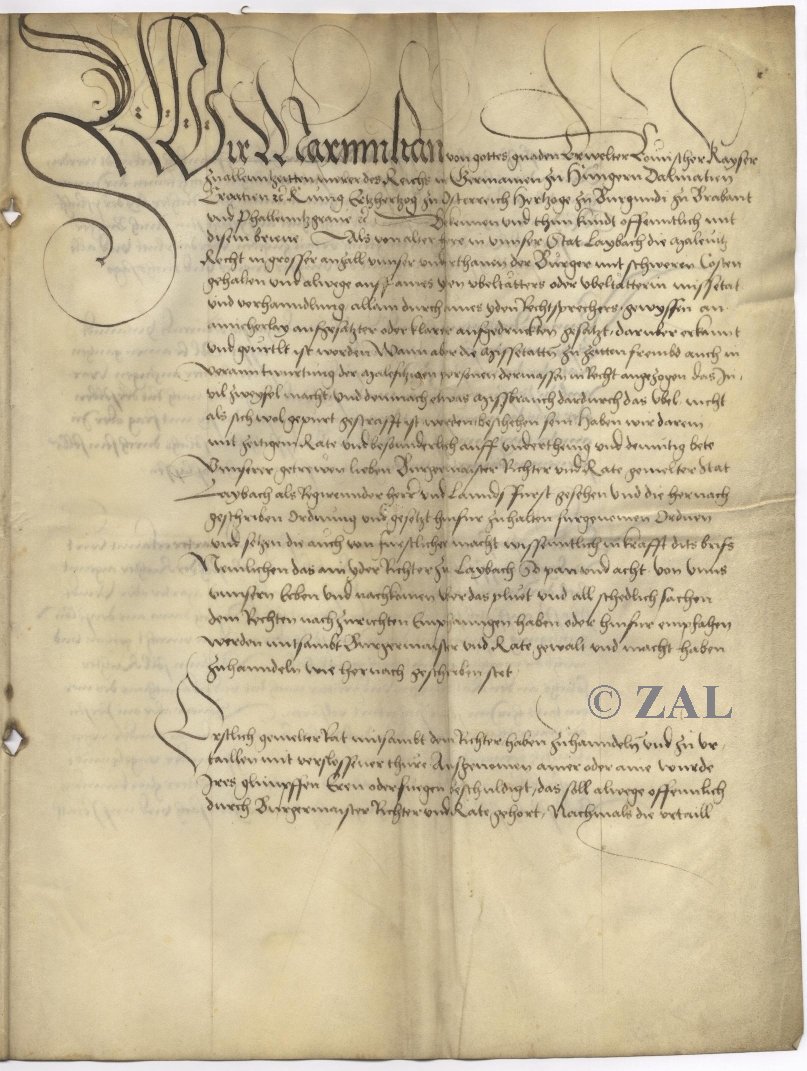 Wir Maximilian von gottes gnaden Erwelter Romischer Kayser
zuallenntzeitten merer des Reichs in Germanien zu Hungern Dalmatien
Croatien &c Kunig Ertzhertzog zu Osterreich Hertzoge zu Burgundi zu Brabant
und Phallenntzgrave &c Bekennen und thun kundt offenntlich mit
disem brieve Als von alter here in unnser Stat Laybach die Malevitz
Recht in grosser anzall unnser underthanen der Burger mit schweren Costen
gehalten und alwege auff aines yeden ubeltatters oder ubeltatterin missetat
und verhanndlung allain durch aines yden Rechtsprechers gewyssen an
ainicherlay aufgesatzter oder klarer aufgedruckten gesatzt, daruber erkannt
und geurtlt ist worden Wann aber die Missetatn zu zeiten frembd auch in
verantwurtung der Malefitzigen personen dermassen in Recht angezogen das In
vil zweyfel macht, und demnach etwas Missbrauch dardurch das ubel nicht
als sich wol gepurt gestrafft ist werden beschehen sein Haben wir darein
mit zeitigem Rate und besonnderlich auff underthenig und demutig bete
Unnserer getrewen lieben Burgermaister Richter und Rate gemelter Stat
Laybach als Regierennder herr und Lannds furst gesehen und die hernach
geschriben Ordnung und gesetzt hinfur zuhalten furgenomen Ordnen
und setzen die auch von furstlicher macht wissenntlich in krafft dits briefs
Nemlichen das ain yder Richter zu Laybach So pan und acht von unns
unnsern Erben und nachkumen uber das pluet und all schedlich sachen
dem Rechten nach zurichten Emphanngen haben oder hinfur emphahen
werden mitsambt Burgermaister und Rate gewalt und macht haben
zuhanndeln wie hernach geschriben stet
© ZAL
Erstlich gemelter Rat mitsambt dem Richter haben zuhanndeln und zu ur-
taillen mit verslossener thure Ausgenomen ainer oder aine wurde
Ires glimpffen Eren oder fuegen beschuldigt, das soll alwege offennlich
durch Burgermaister Richter und Rate gehort, Nachmals die urtaill